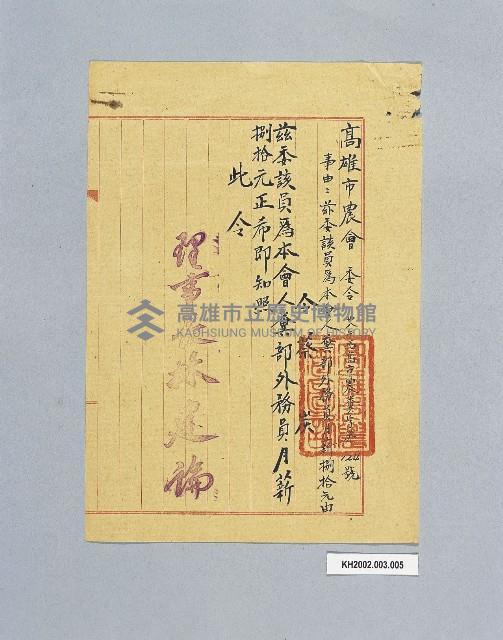 高雄市農會 委令 號
事由：茲委該員爲本會人糞部外務員月薪捌拾元由
令 蔡 炭
茲委該員爲本會人糞部外務員月薪
捌拾元正希即知照
此令
理事長林迦
高雄市立歷史博物館
KAOHSIUNG MUSEUM OF HISTORY
KH2002.003.005